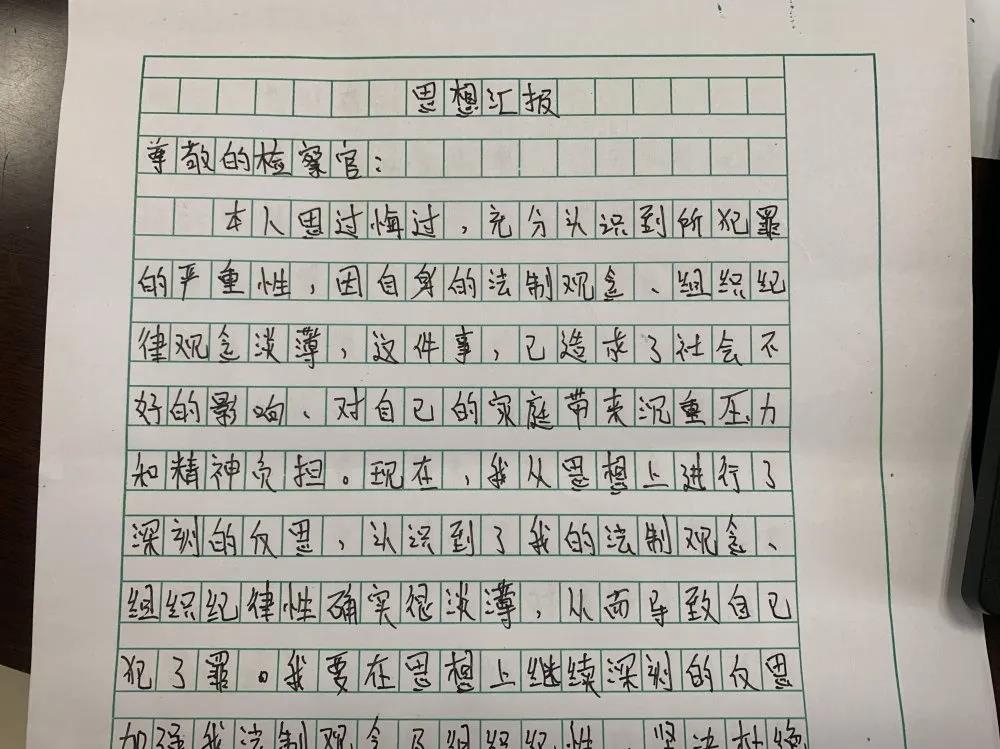 思想汇报
尊敬的检察官：
本人思过悔过，充分认识到所犯罪
的严重性，因自身的法制观念、组织纪
律观念淡薄，这件事，已造成了社会不
好的影响、对自己的家庭带来沉重压力
和精神负担。现在，我从思想上进行了
深刻的反思，认识到了我的法制观念、
组织纪律性确实很淡薄，从而导致自己
犯了罪。我要在思想上继续深刻的反思
加强我法制观念及组织纪律性，坚决杜绝